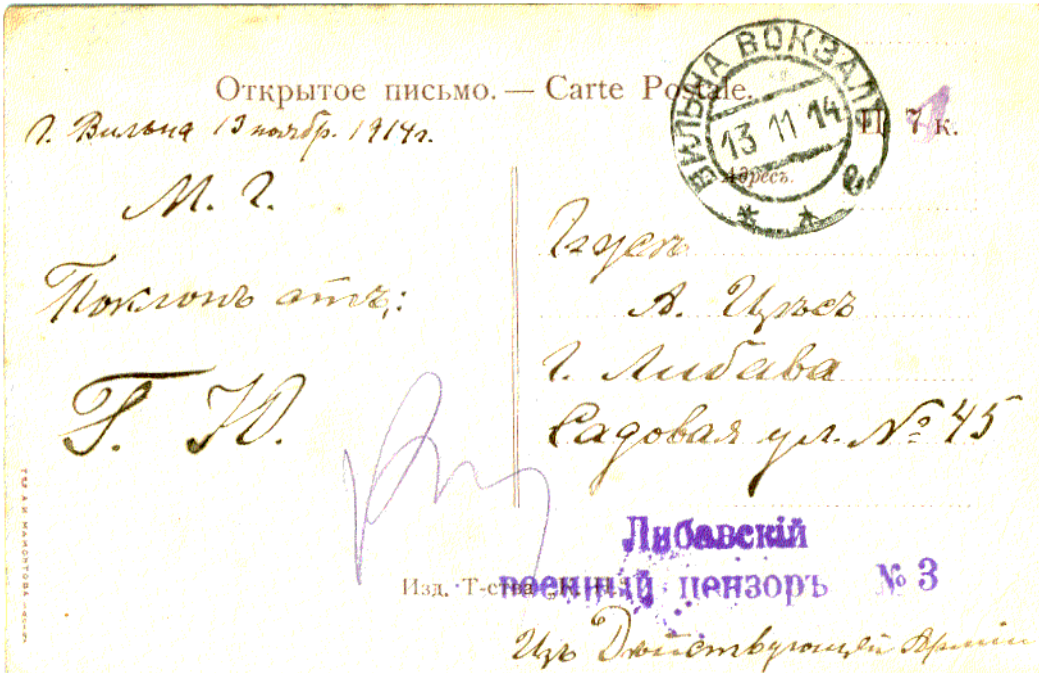 Открытое письмо. — Carte Postale.
ВИЛЬНА ВОКЗАЛЪ
13 11 14
е
Ц. 7 к.
Адресъ.
Г. Вильна 13 ноябр. 1914г.
М. Г.
Поклонъ отъ:
Г. Ю.
А.
г. Либава
Садовая ул. № 45
Либавскій
военный цензоръ № 3
Изд. Т-ства
Изъ Действующей Арміи